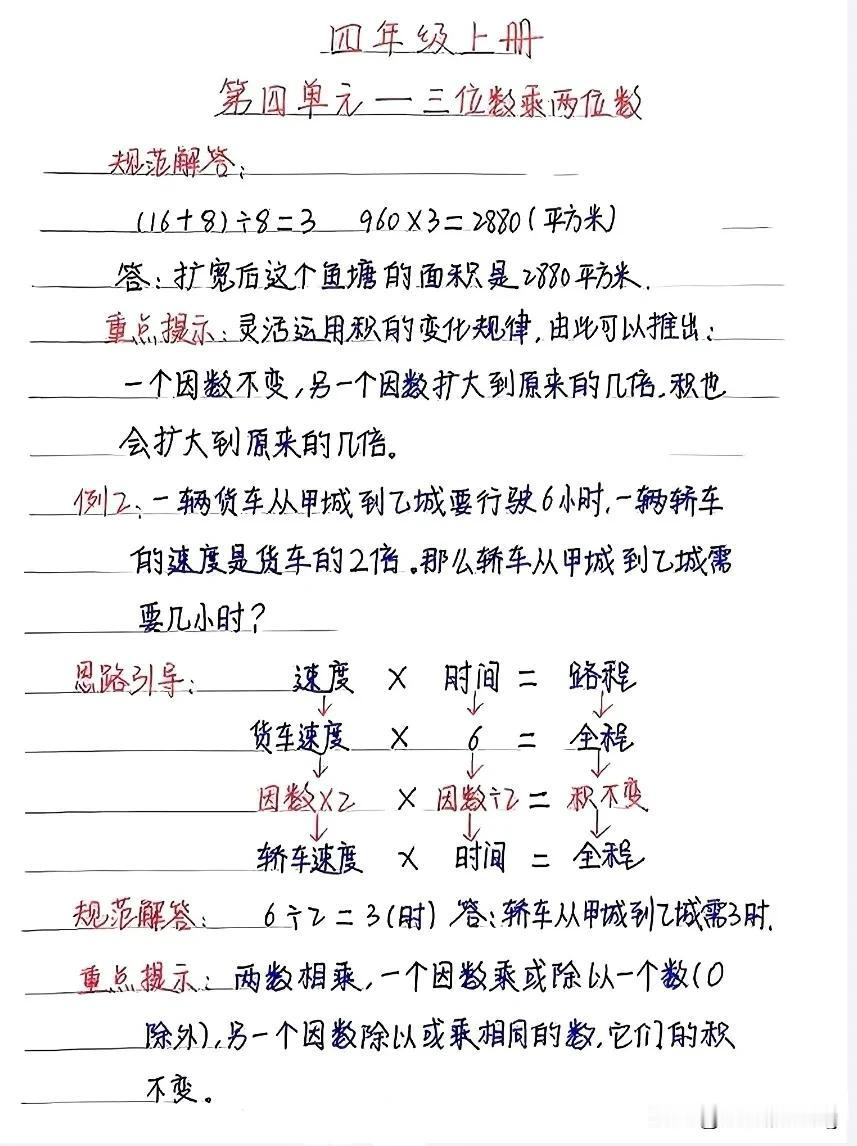 四年级上册
第四单元一三位数乘两位数
规范解答:
(16+8)÷8=3 960×3=2880(平方米)
答:扩宽后这个鱼塘的面积是2880平方米.
重点提示:灵活运用积的变化规律,由此可以推出:
一个因数不变,另一个因数扩大到原来的几倍.积也
会扩大到原来的几倍。
例2:一辆货车从甲城到乙城要行驶6小时.一辆轿车
的速度是货车的2倍.那么轿车从甲城到乙城需
要几小时?
思路引导: 速度 × 时间 = 路程
货车速度 × 6 = 全程
因数×2 × 因数÷2 = 积不变
轿车速度 × 时间 = 全程
规范解答: 6÷2=3(时) 答:轿车从甲城到乙城需3时.
重点提示:两数相乘,一个因数乘或除以一个数(0
除外),另一个因数除以或乘相同的数,它们的积
不变。